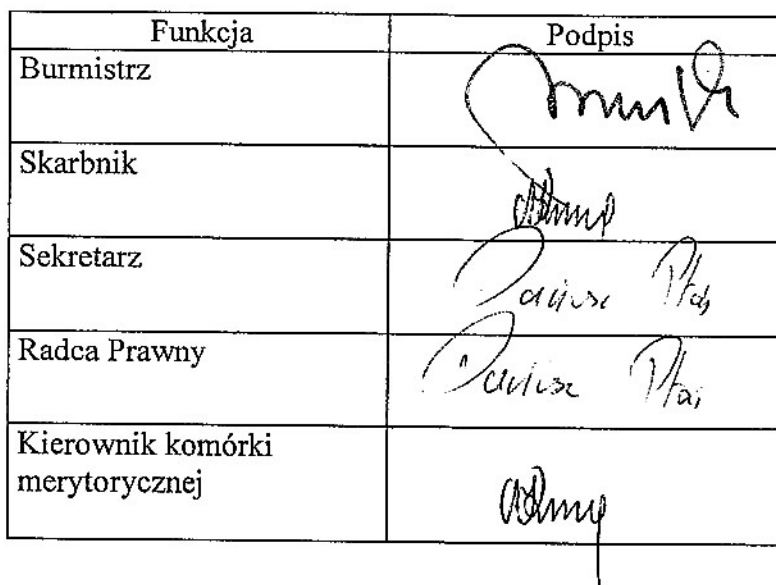 Funkcja Podpis
Burmistrz
Skarbnik
Sekretarz
Dariusz Ptaś
Radca Prawny
Dariusz Ptaś
Kierownik komórki
merytorycznej